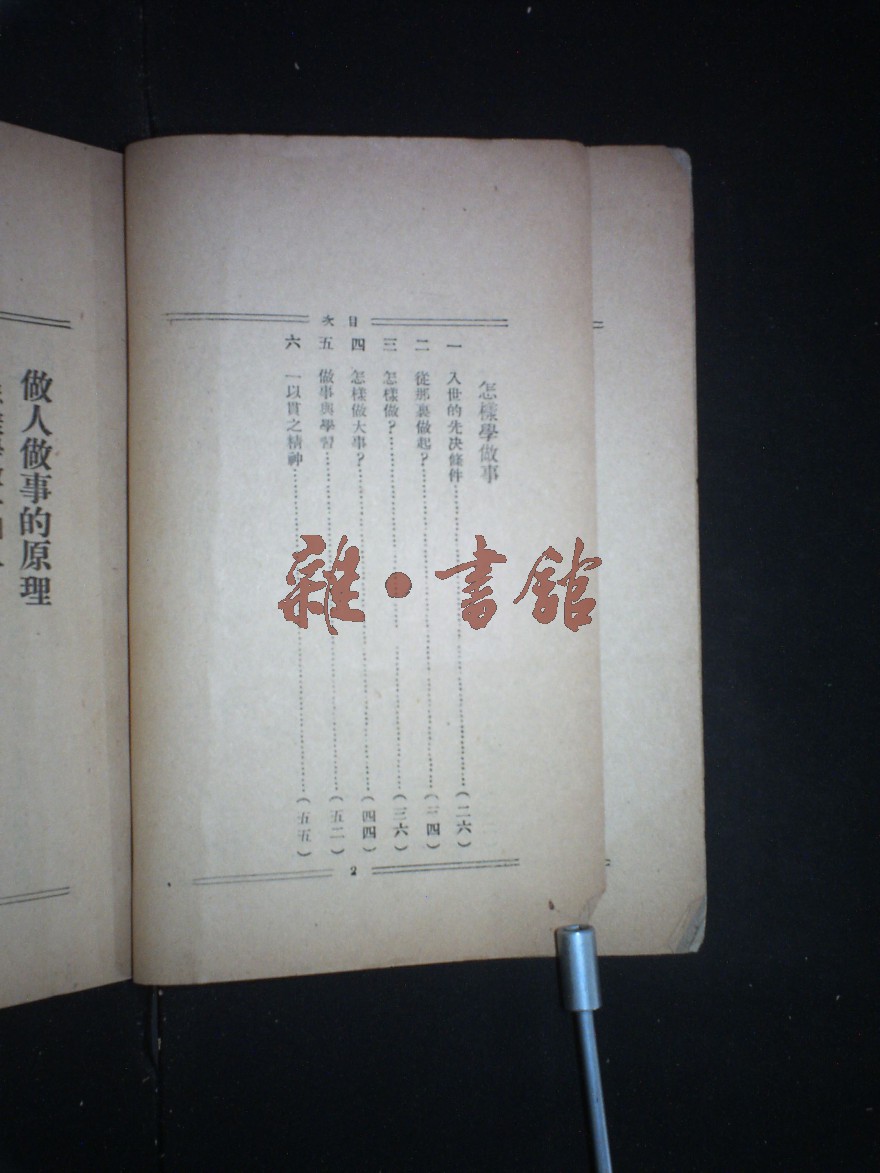 目次
怎樣學做事
一 入世的先决條件…………（二六）
二 從那裏做起？…………（三四）
三 怎樣做？…………（三六）
四 怎樣做大事？…………（四四）
五 做事與學習…………（五二）
六 一以貫之精神…………（五五）
2
做人做事的原理
雜•書館